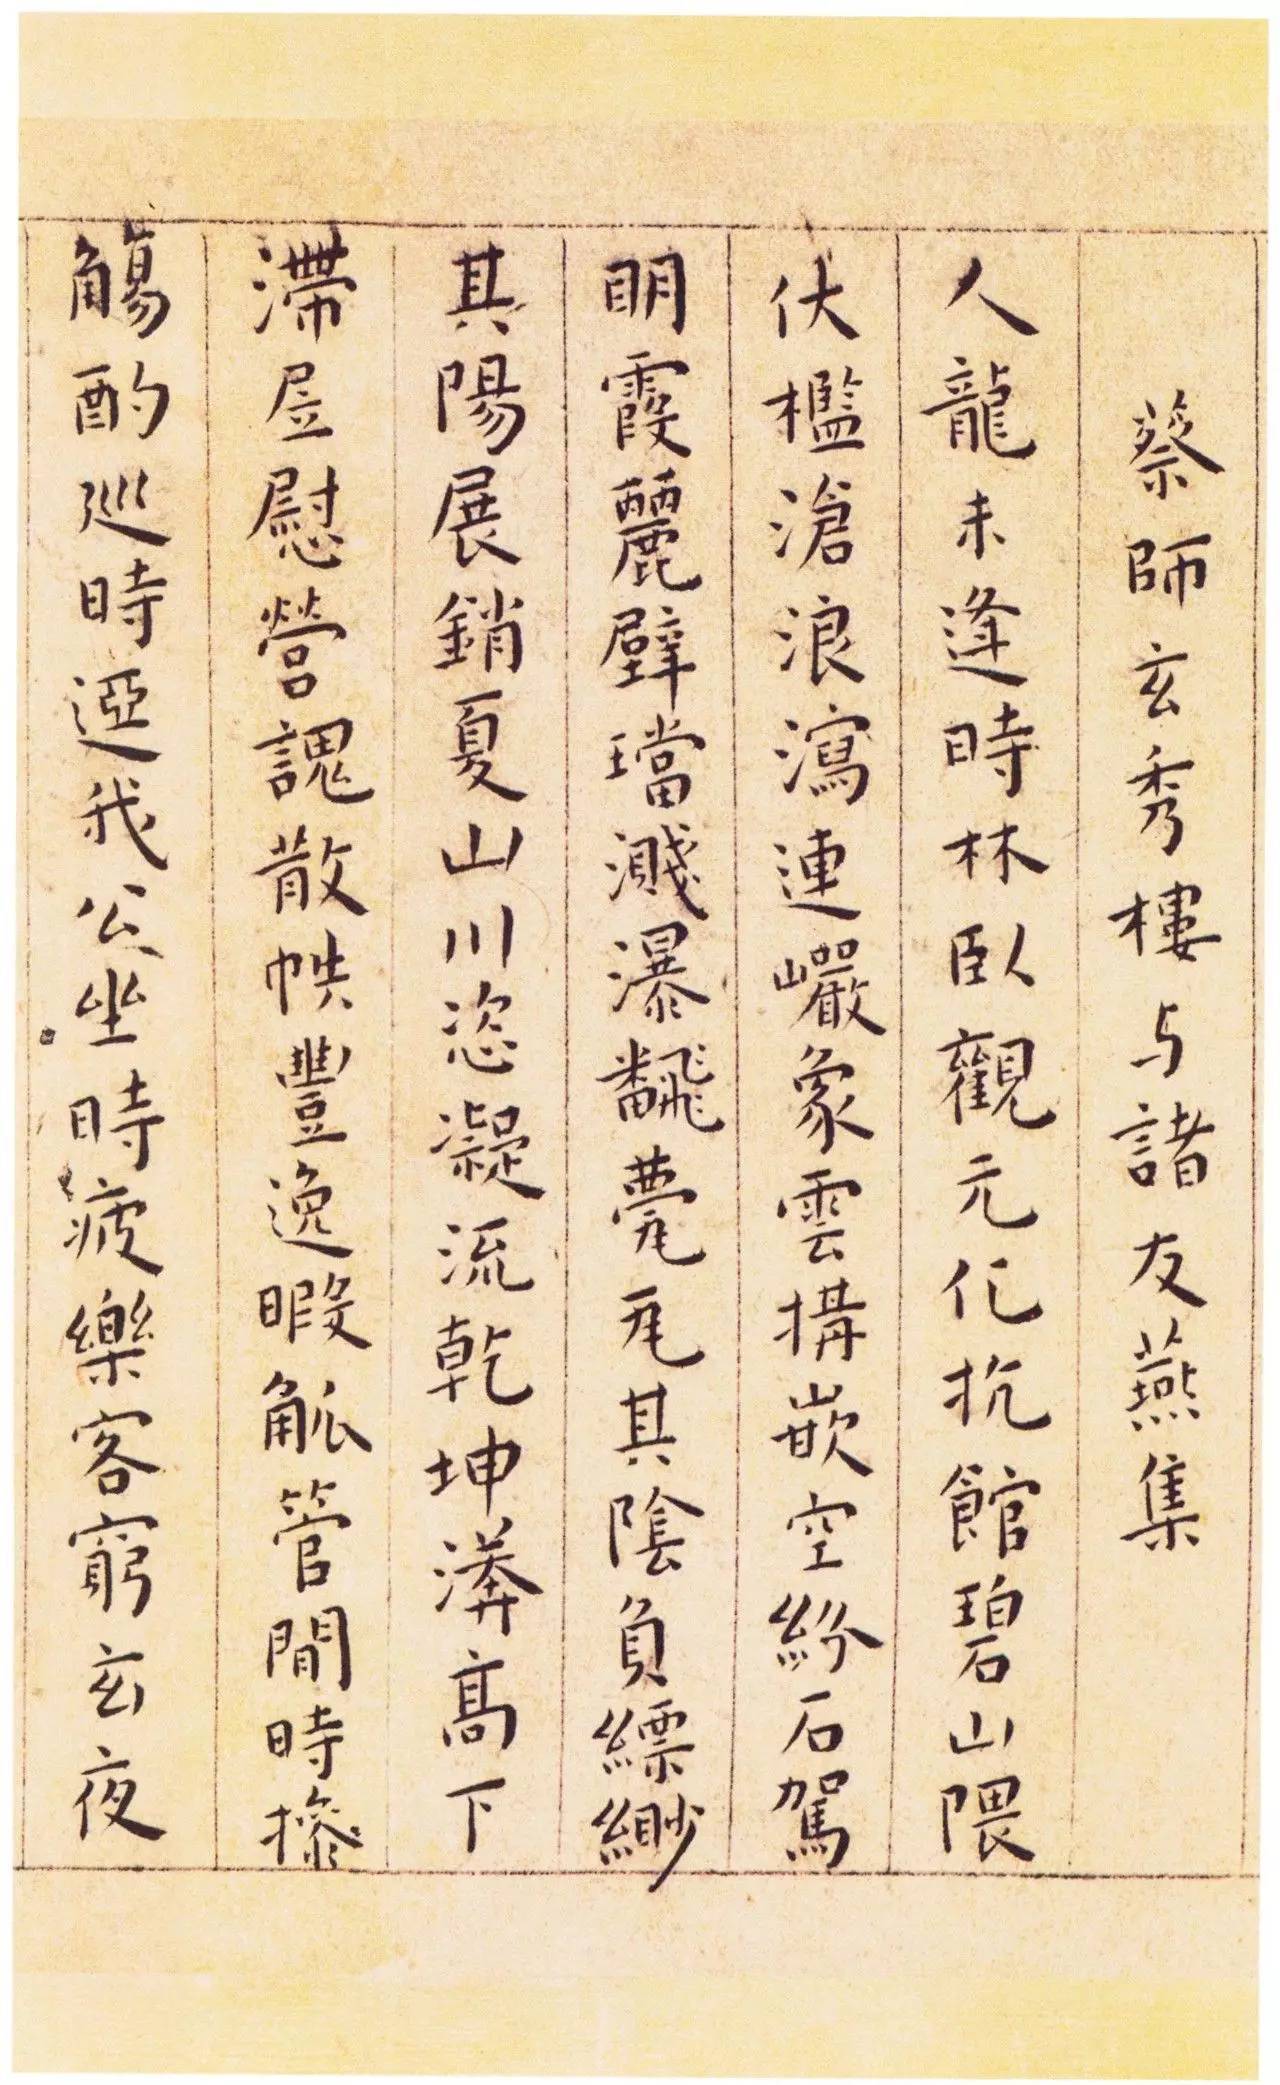 蔡師玄秀樓与諸友燕集
人龍未逢時林臥觀元化抗館碧山隈
伏檻滄浪瀉連巖象雲構嵌空紛石駕
明霞麗壁璫濺瀑飜甍瓦其陰負縹緲
其陽展銷夏山川恣凝流乾坤漭高下
滯屈慰營魂散帙豐逸暇觚管閒時摻
觴酌巡時迓我公坐時疲樂客窮玄夜